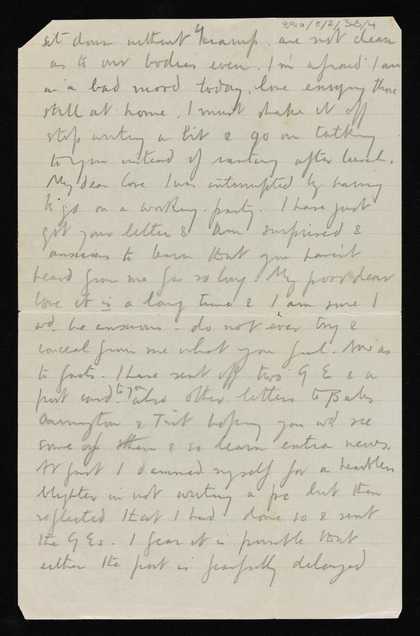 sit down without cramp. are not clean
as to our bodies even. I'm afraid I am
in a bad mood today, love envying those
still at home. I must shake it off
stop writing a bit & go on talking
to you instead of ranting after lunch.
My dear love I was interrupted by having
to go on a working party. I have just
got your letter & am surprised &
anxious to learn that you haven't
heard from me for so long. My poor dear
love it is a long time & I am sure I
wd. be anxious - do not ever try &
conceal from me what you feel. Now as
to facts. I have sent off two G E s & a
post card to you also other letters to
Carrington & Trit hoping you wd see
some of them & so learn extra news.
At first I damned myself for a heartless
blighter in not writing a pc but then
reflected that I had done so & sent
the G Es. I fear it is possible that
either the post is fearfully delayed